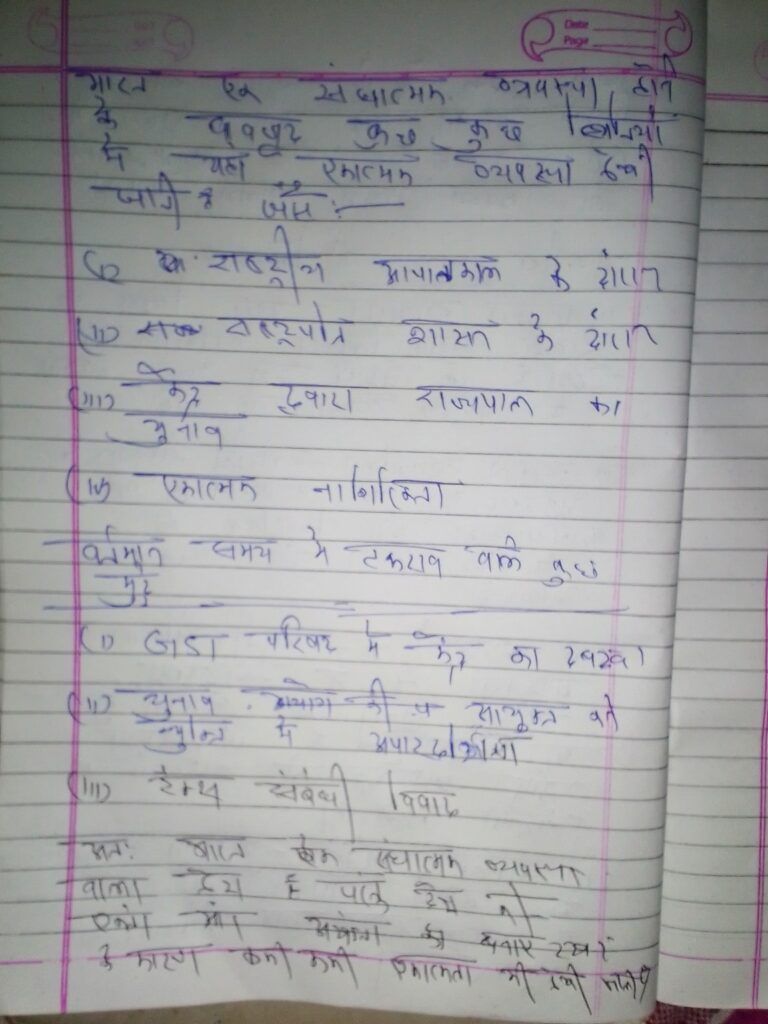 Date
Page
भारत एक संघात्मक व्यवस्था होने
के बावजूद कुछ कुछ स्थितियों
में यहा एकात्मक व्यवस्था देखी
जाती है जैसे :—
(i) राष्ट्रीय आपातकाल के दौरान
(ii) राष्ट्रपति शासन के दौरान
(iii) केंद्र द्वारा राज्यपाल का
चुनाव
(iv) एकात्मक नागरिकता
वर्तमान समय में टकराव वाले कुछ
मुद्दे
(i) GST परिषद में केंद्र का दबदबा
(ii) चुनाव आयोग की आयुक्त की
नियुक्ति में अपारदर्शिता
(iii) टैक्स संबंधी विवाद
अतः भारत एक संघात्मक व्यवस्था
वाला देश है परंतु देश की
बनाए रखने
के कारण कभी कभी एकात्मता भी देखी जाती है